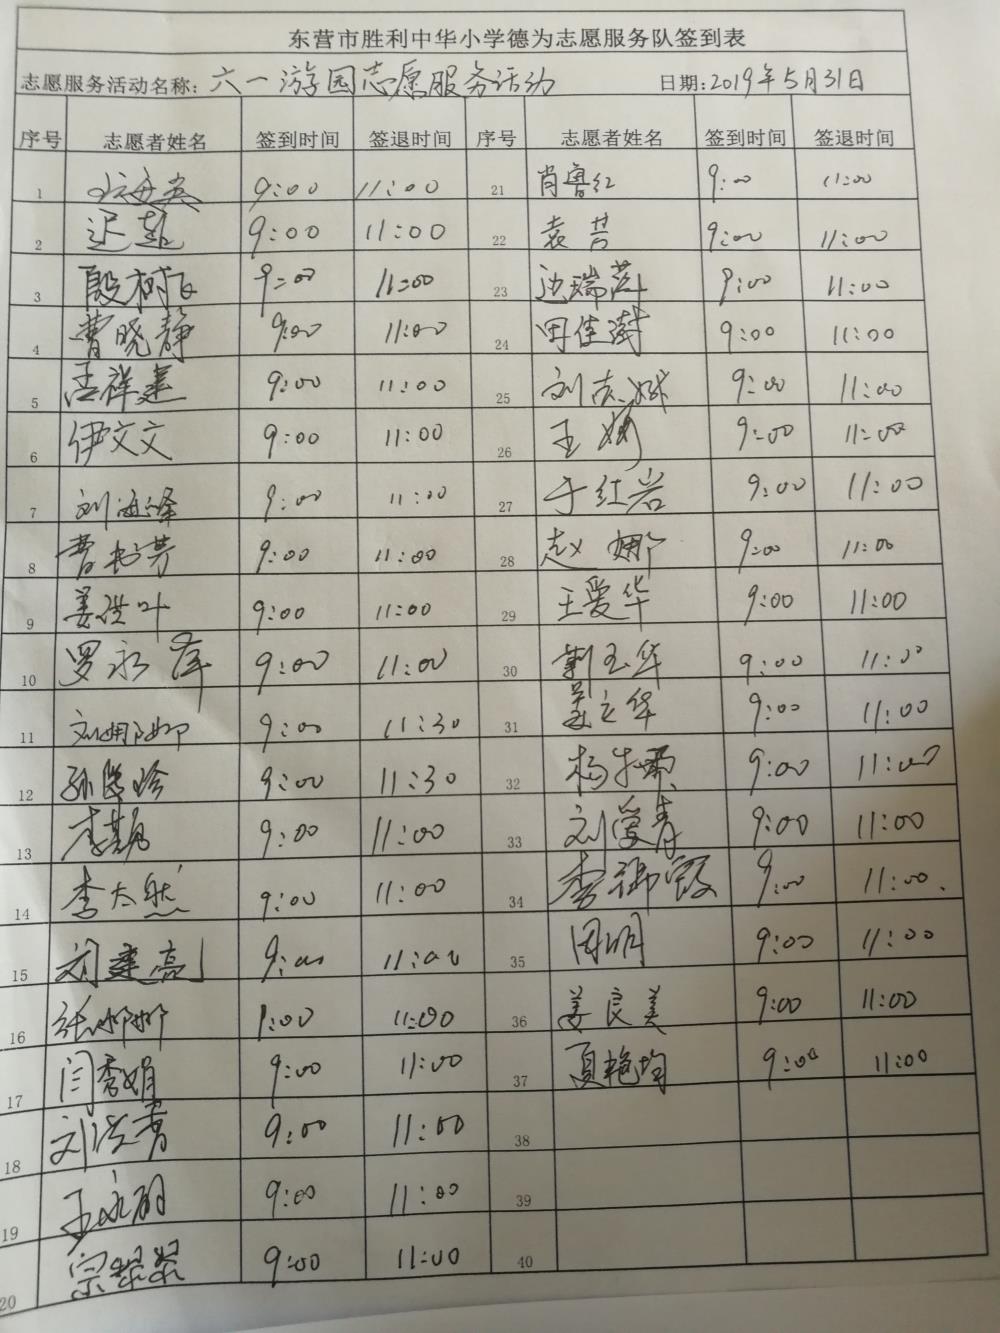 东营市胜利中华小学德为志愿服务队签到表
志愿服务活动名称: 六一游园志愿服务活动 日期: 2019年5月31日
序号 志愿者姓名 签到时间 签退时间 序号 志愿者姓名 签到时间 签退时间
1 9:00 11:00 21 肖鲁红 9:00 11:00
2 迟 9:00 11:00 22 袁苦 9:00 11:00
3 殷树 9:00 11:00 23 瑞 9:00 11:00
4 曹晓静 9:00 11:00 24 田佳 9:00 11:00
5 孟祥建 9:00 11:00 25 刘志斌 9:00 11:00
6 伊文文 9:00 11:00 26 王娜 9:00 11:00
7 刘海峰 9:00 11:00 27 于红岩 9:00 11:00
8 曹芳 9:00 11:00 28 赵娜 9:00 11:00
9 姜洪叶 9:00 11:00 29 王爱华 9:00 11:00
10 罗永萍 9:00 11:00 30 靳玉华 9:00 11:00
11 刘娜娜 9:00 11:30 31 姜立华 9:00 11:00
12 孙玲 9:00 11:30 32 杨 9:00 11:00
13 李 9:00 11:00 33 刘爱青 9:00 11:00
14 李大然 9:00 11:00 34 李霞 9:00 11:00.
15 刘建亮 9:00 11:00 35 周明 9:00 11:00
16 张娜娜 9:00 11:00 36 姜良美 9:00 11:00
17 闫秀娟 9:00 11:00 37 夏艳均 9:00 11:00
18 刘青 9:00 11:00 38
19 王丽 9:00 11:00 39
20 宗翠翠 9:00 11:00 40